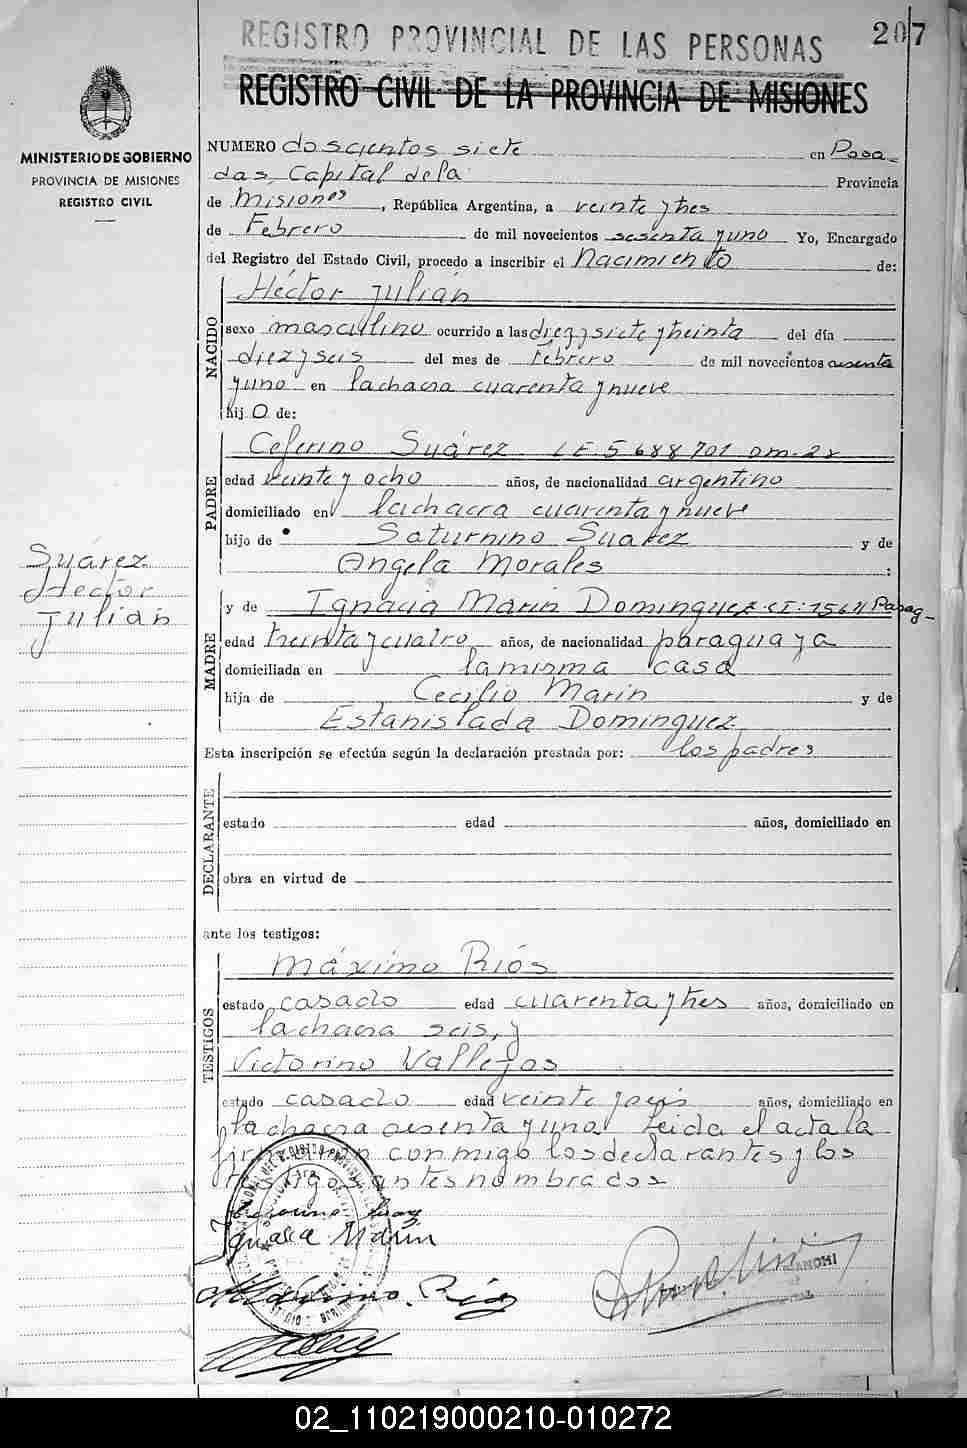 REGISTRO PROVINCIAL DE LAS PERSONAS
207
REGISTRO CIVIL DE LA PROVINCIA DE MISIONES
MINISTERIO DE GOBIERNO
PROVINCIA DE MISIONES
REGISTRO CIVIL
NUMERO doscientos siete en Posa-
das, Capital de la Provincia
de Misiones, República Argentina, a veinte y tres
de Febrero de mil novecientos sesenta y uno Yo, Encargado
del Registro del Estado Civil, procedo a inscribir el Nacimiento de:
NACIDO
Héctor Julián
sexo masculino ocurrido a las diez y siete y treinta del día
diez y seis del mes de Febrero de mil novecientos sesenta
y uno en la chacra cuarenta y nueve
hij o de:
PADRE
Ceferino Suárez LE 5688701 DM.
edad veinte y ocho años, de nacionalidad argentino
domiciliado en la chacra cuarenta y nueve
hijo de Saturnino Suarez y de
Angela Morales :
Suárez
Hector
Julián
MADRE
y de Ignacia Marin Dominguez CI: Parag-
edad treinta y cuatro años, de nacionalidad paraguaya
domiciliada en la misma casa
hija de Cecilio Marin y de
Estanislada Dominguez
Esta inscripción se efectúa según la declaración prestada por: los padres
DECLARANTE
estado edad años, domiciliado en
obra en virtud de
ante los testigos:
TESTIGOS
Máximo Riós
estado casado edad cuarenta y tres años, domiciliado en
la chacra seis, y
Victorino Vallejos
estado casado edad veinte y seis años, domiciliado en
la chacra sesenta y uno. Leida el acta la
firmaron conmigo los declarantes y los
testigos antes nombrados
Marin
02_110219000210-010272